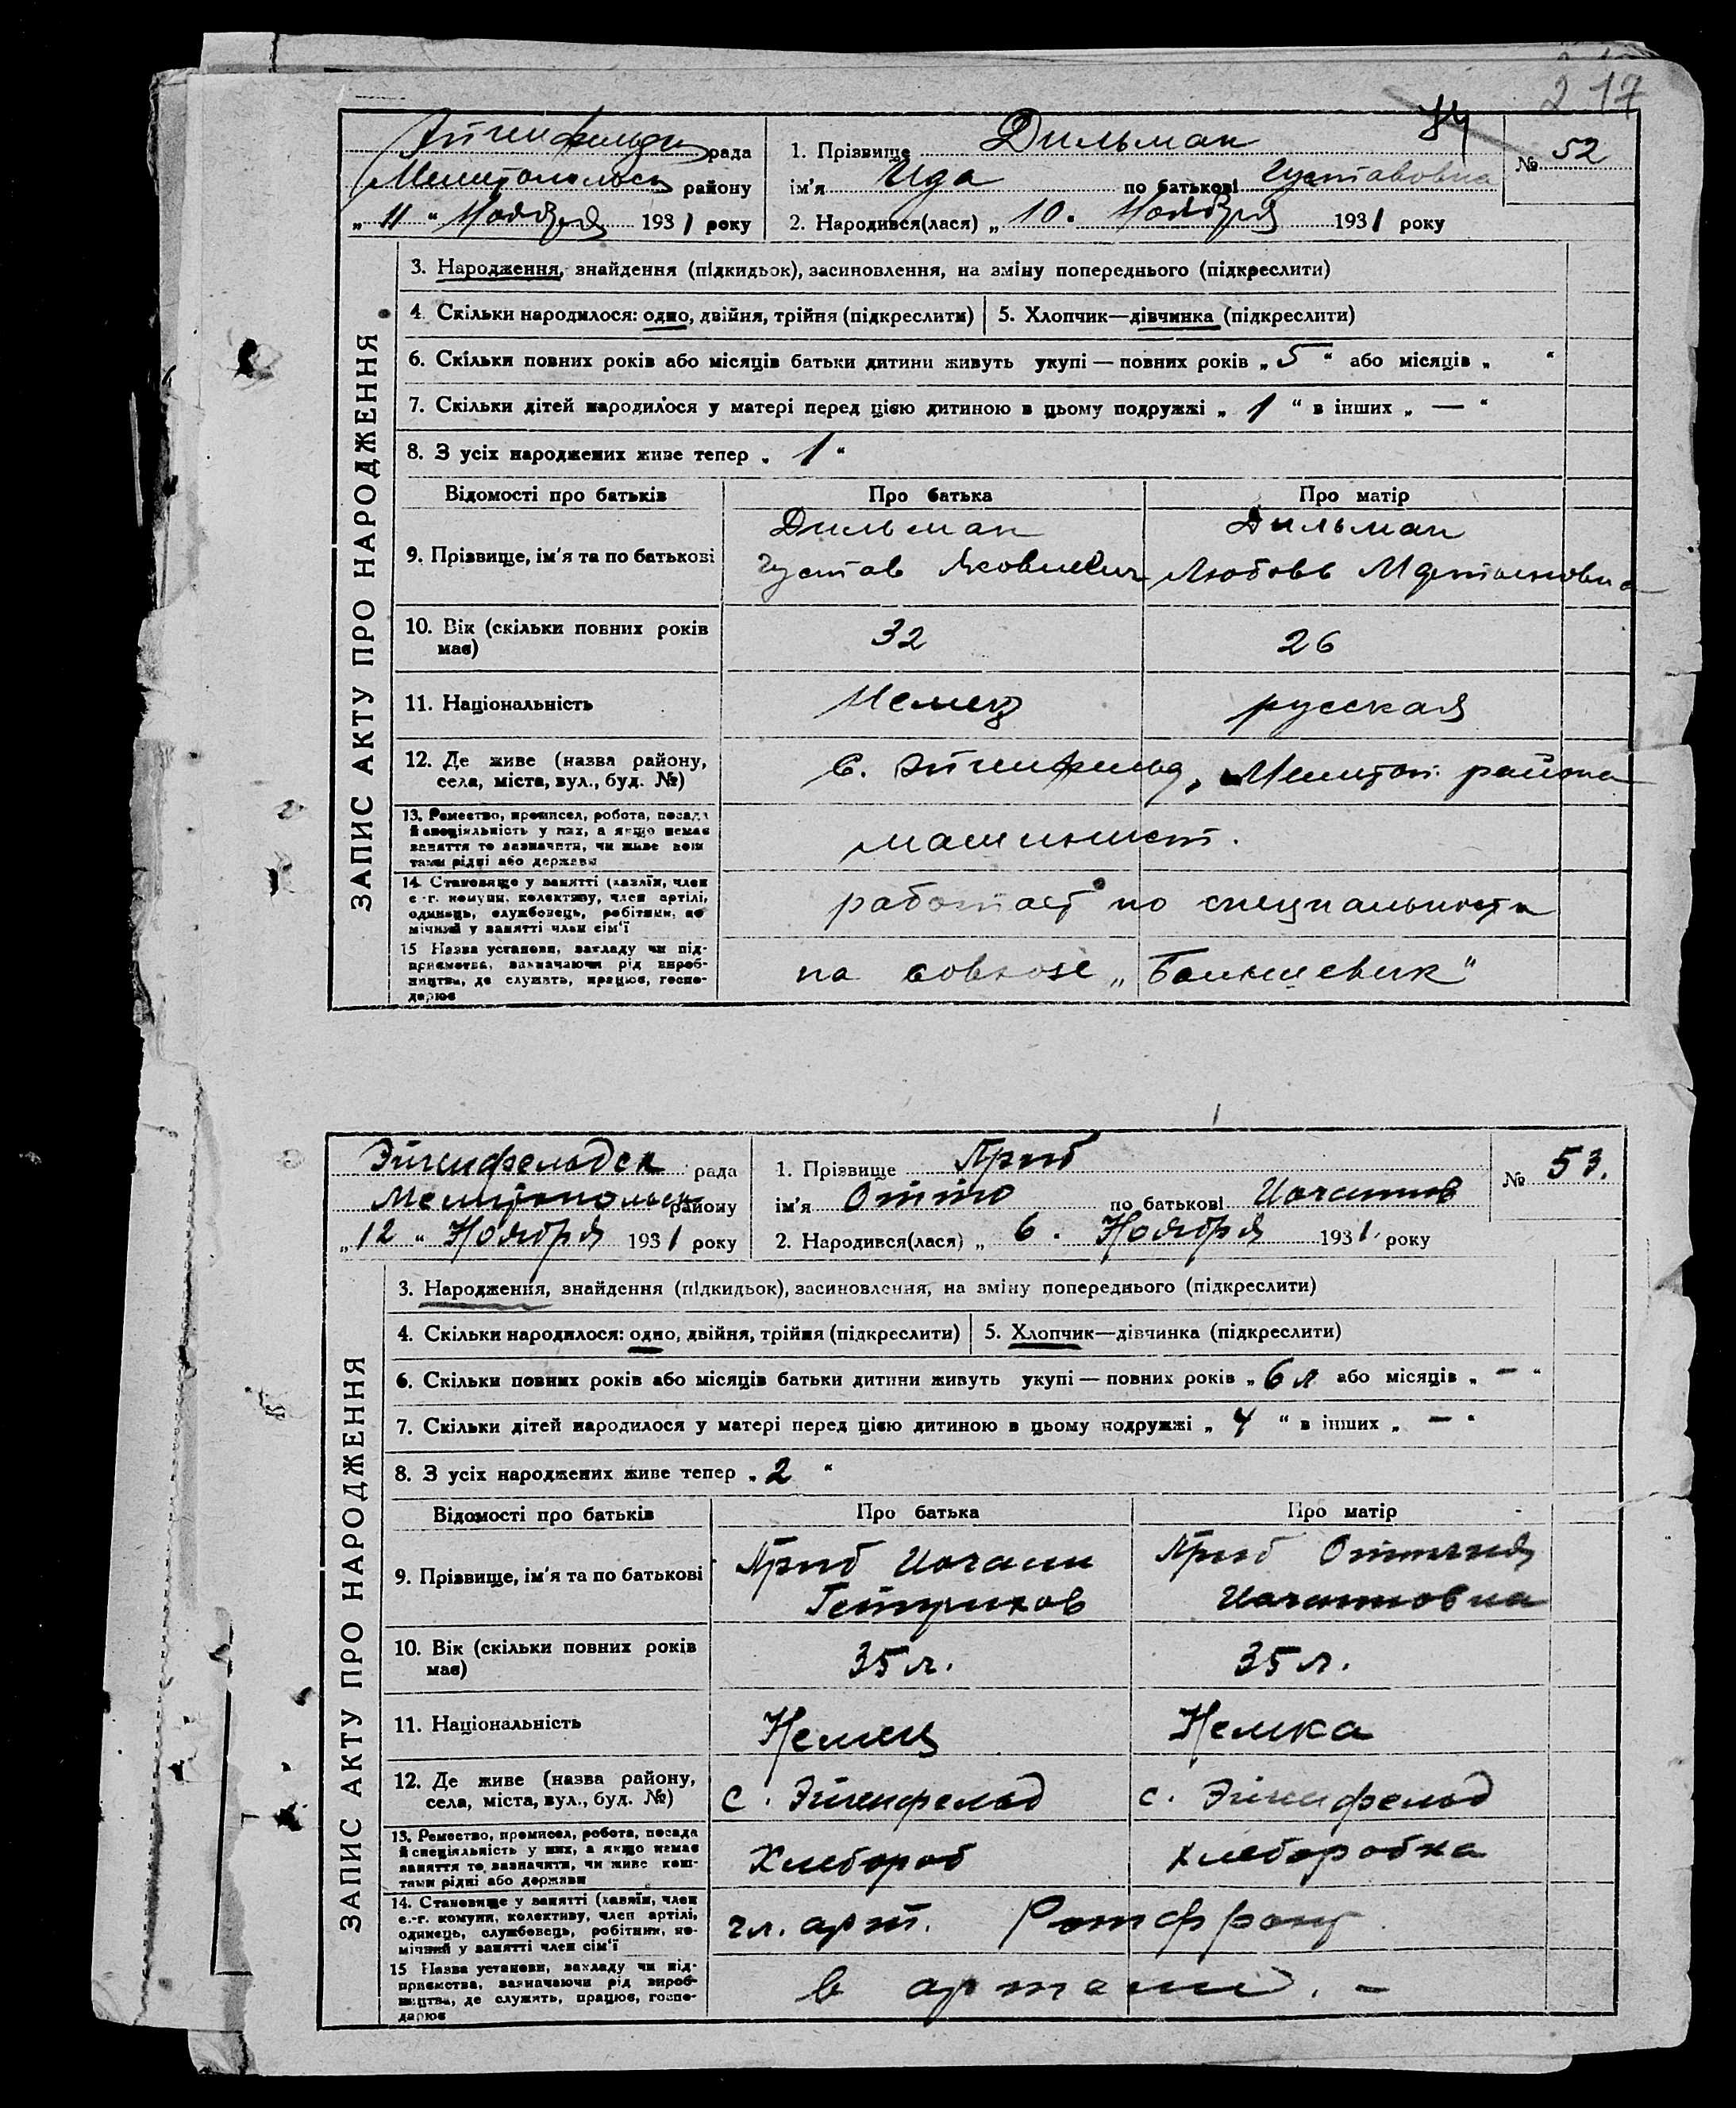 217
84
Эйгенфельдск рада
Мелитопольск району
„ 11 “ Ноября 1931 року
1. Прізвище Дильман
ім'я Ида по батькові Густавовна
2. Народився(лася) „ 10. Ноября 1931 року
№ 52
ЗАПИС АКТУ ПРО НАРОДЖЕННЯ
3. Народження, знайдення (підкидьок), засиновлення, на зміну попереднього (підкреслити)
4. Скільки народилося: одно, двійня, трійня (підкреслити) 5. Хлопчик—дівчинка (підкреслити)
6. Скільки повних років або місяців батьки дитини живуть укупі — повних років „ 5 “ або місяців „ “
7. Скільки дітей народилося у матері перед цією дитиною в цьому подружжі „ 1 “ в інших „ — “
8. З усіх народжених живе тепер „ 1 “
Відомості про батьків Про батька Про матір
9. Прізвище, ім'я та по батькові
Дильман
Густав Яковлевич
Дильман
Любовь
10. Вік (скільки повних років
має)
32 26
11. Національність Немец русская
12. Де живе (назва району,
села, міста, вул., буд. №)
с. Эйгенфельд, Мелитоп. района
13. Ремество, промисел, робота, посада
й спеціяльність у них, а якщо немає
заняття то зазначити, чи живе кош-
тами рідні або держави
машинист.
14. Становище у занятті (хазяїн, член
с.-г. комуни, колективу, член артілі,
одинець, службовець, робітник, по-
мічний у занятті член сім'ї
работает по специальности
15 Назва установи, закладу чи під-
приємства, зазначаючи рід вироб-
ництва, де служить, працює, госпо-
дарює
на совхозе „Большевик“
Эйгенфельдск рада
Мелитопольск району
„ 12 “ Ноября 1931 року
1. Прізвище
ім'я Отто по батькові
2. Народився(лася) „ 6. Ноября 1931 року
№ 53.
ЗАПИС АКТУ ПРО НАРОДЖЕННЯ
3. Народження, знайдення (підкидьок), засиновлення, на зміну попереднього (підкреслити)
4. Скільки народилося: одно, двійня, трійня (підкреслити) 5. Хлопчик—дівчинка (підкреслити)
6. Скільки повних років або місяців батьки дитини живуть укупі — повних років „ 6 л або місяців „ — “
7. Скільки дітей народилося у матері перед цією дитиною в цьому подружжі „ 4 “ в інших „ — “
8. З усіх народжених живе тепер „ 2 “
Відомості про батьків Про батька Про матір
9. Прізвище, ім'я та по батькові
10. Вік (скільки повних років
має)
35 л. 35 л.
11. Національність Немец Немка
12. Де живе (назва району,
села, міста, вул., буд. №)
с. Эйгенфельд с. Эйгенфельд
13. Ремество, промисел, робота, посада
й спеціяльність у них, а якщо немає
заняття то зазначити, чи живе кош-
тами рідні або держави
Хлебороб хлеборобка
14. Становище у занятті (хазяїн, член
с.-г. комуни, колективу, член артілі,
одинець, службовець, робітник, по-
мічний у занятті член сім'ї
чл. арт. Ротфронт
15 Назва установи, закладу чи під-
приємства, зазначаючи рід вироб-
ництва, де служить, працює, госпо-
дарює
в артели. –